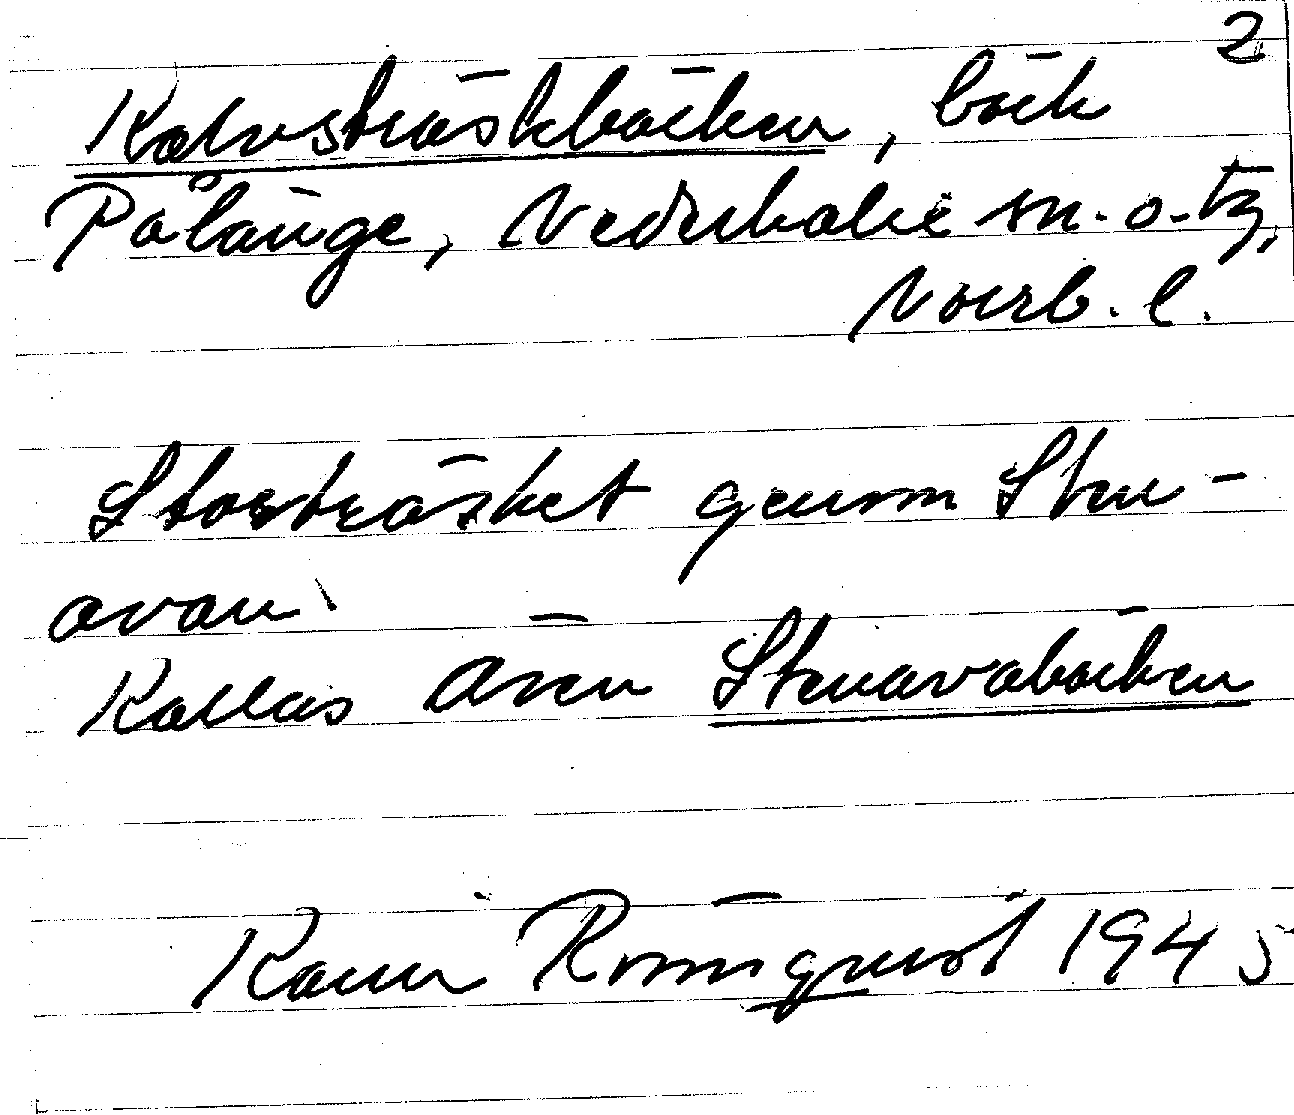 2
Kalvsträskbäcken, bäck
Pålänge, Nederkalix sn. o. tg,
Norrb. l.
Storträsket genom Sten-
avan.
Kallas även Stenavabäcken
Karin Rönnqvist 1945